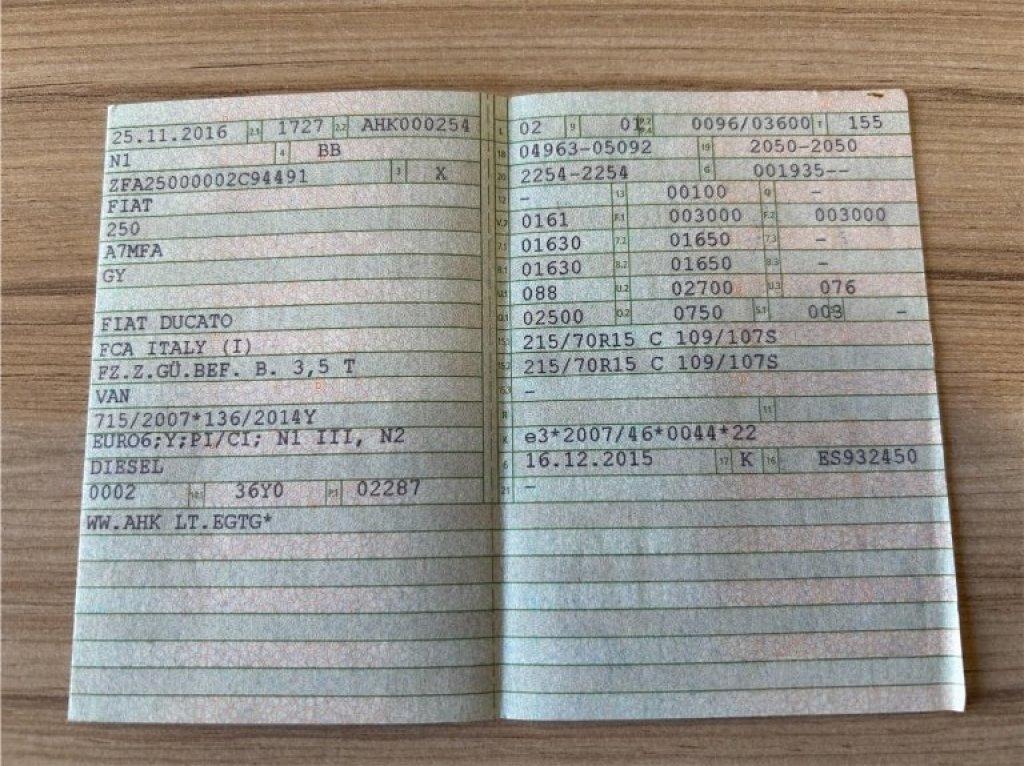 25.11.2016 2.1 1727 2.2 AHK000254
N1 4 BB
ZFA25000002C94491 3 X
FIAT
250
A7MFA
GY
FIAT DUCATO
FCA ITALY (I)
FZ.Z.GÜ.BEF. B. 3,5 T
VAN
715/2007*136/2014Y
EURO6;Y;PI/CI; N1 III, N2
DIESEL
0002 10.1 36Y0 P.1 02287
WW.AHK LT.EGTG*
L 02 9 01 P.2 P.4 0096/03600 T 155
18 04963-05092 19 2050-2050
20 2254-2254 G 001935--
12 - 13 00100 Q -
V.7 0161 F.1 003000 F.2 003000
7.1 01630 7.2 01650 7.3 -
8.1 01630 8.2 01650 8.3 -
U.1 088 U.2 02700 U.3 076
O.1 02500 O.2 0750 S.1 003 -
15.1 215/70R15 C 109/107S
15.2 215/70R15 C 109/107S
15.3 -
R 11
K e3*2007/46*0044*22
6 16.12.2015 17 K 16 ES932450
21 -